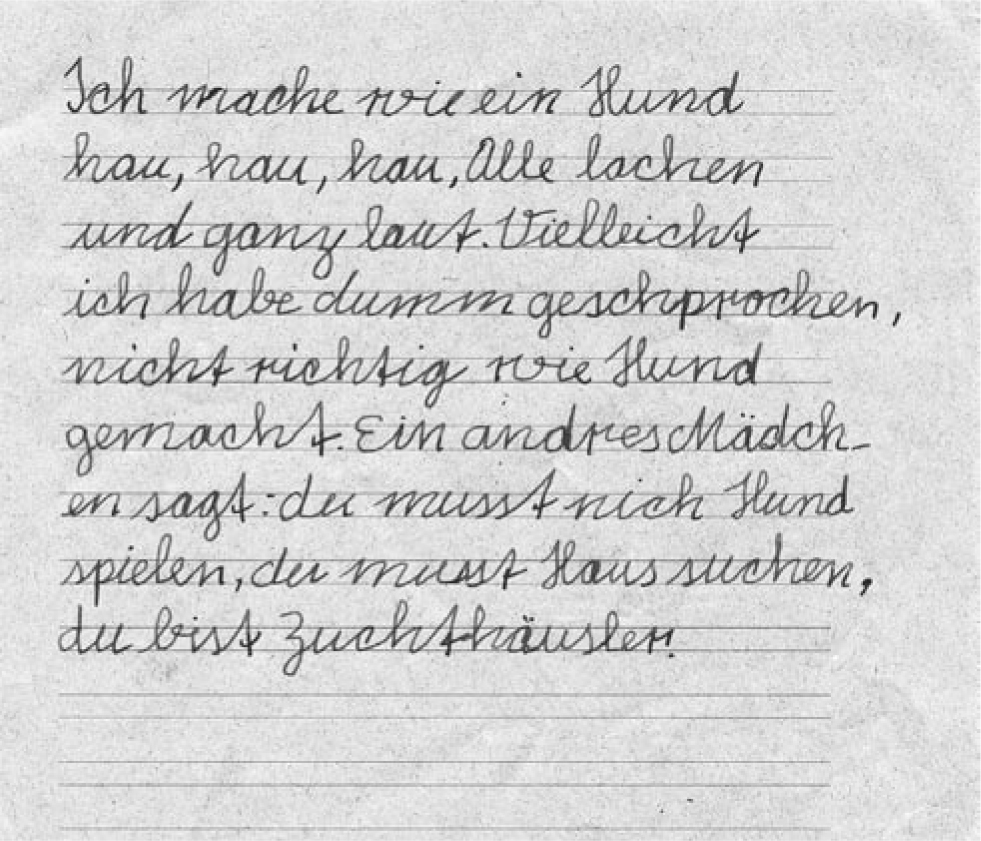 Ich mache wie ein Hund
hau, hau, hau, Alle lachen
und ganz laut. Vielleicht
ich habe dumm geschprochen,
nicht richtig wie Hund
gemacht. Ein andres Mädch-
en sagt: du musst nich Hund
spielen, du musst Haus suchen,
du bist Zuchthäusler!